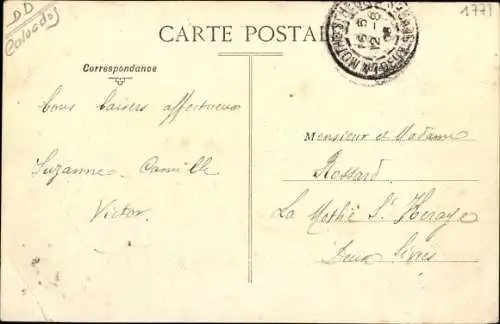 DD
Calvados
1771
CARTE POSTALE
Correspondance
Bons baisers affectueux
Suzanne Camille
Victor.
Monsieur et Madame
Rossard
La Mothe St Heraye
Deux Sèvres